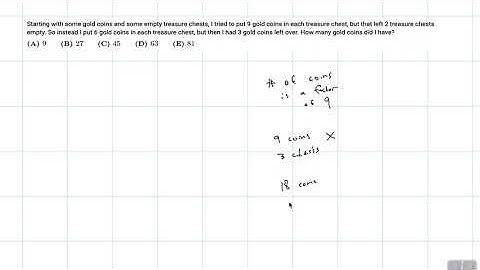 Starting with some gold coins and some empty treasure chests, I tried to put 9 gold coins in each treasure chest, but that left 2 treasure chests
empty. So instead I put 6 gold coins in each treasure chest, but then I had 3 gold coins left over. How many gold coins did I have?
(A) 9 (B) 27 (C) 45 (D) 63 (E) 81
# of coins
is a factor
of 9
9 coins X
3 chests
18 coins